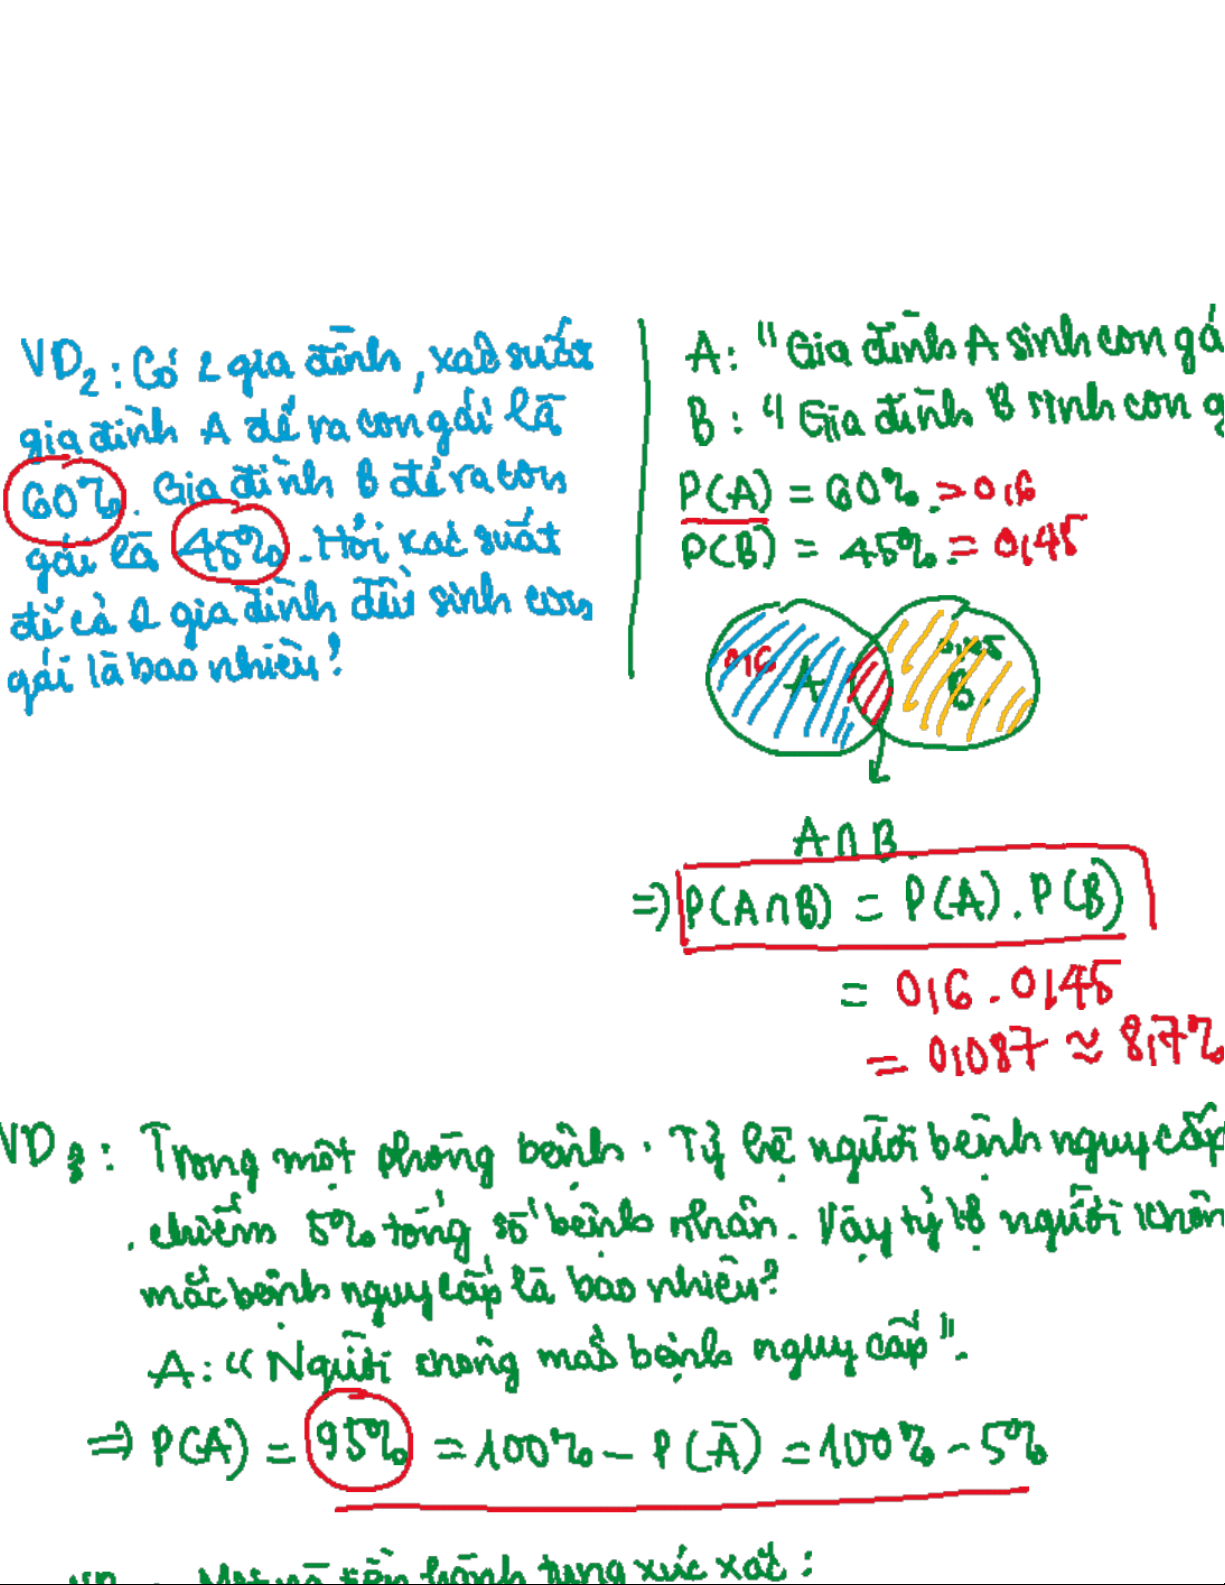 VD2: Có 2 gia đình, xác suất
gia đình A đẻ ra con gái là
60%. Gia đình B đẻ ra con
gái là 45%. Hỏi xác suất
để cả 2 gia đình đều sinh con
gái là bao nhiêu?
A: "Gia đình A sinh con gá
B: "Gia đình B sinh con g
P(A) = 60% = 0,6
P(B) = 45% = 0,45
0,6 A 0,45 B
A∩B
=> P(A∩B) = P(A).P(B)
= 0,6.0,45
= 0,087 ≈ 8,7%
VD3: Trong một phòng bệnh. Tỷ lệ người bệnh nguy cấp
chiếm 5% tổng số bệnh nhân. Vậy tỷ lệ người khôn
mắc bệnh nguy cấp là bao nhiêu?
A: "Người không mắc bệnh nguy cấp".
=> P(A) = 95% = 100% - P(Ā) = 100% - 5%
tung xúc xắc: